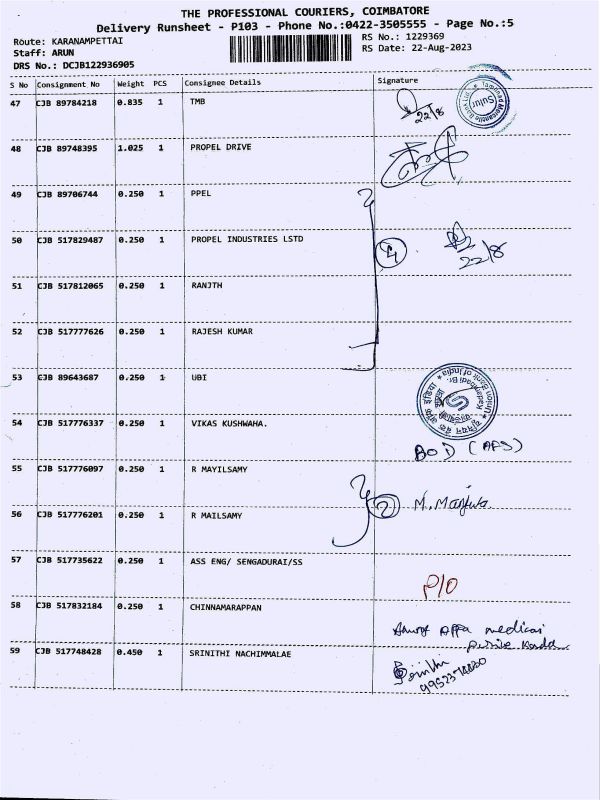 THE PROFESSIONAL COURIERS, COIMBATORE
Delivery Runsheet - P103 - Phone No.:0422-3505555 - Page No.:5
Route: KARANAMPETTAI RS No.: 1229369
Staff: ARUN RS Date: 22-Aug-2023
DRS No.: DCJB122936905
S No Consignment No Weight PCS Consignee Details Signature
47 CJB 89784218 0.835 1 TMB 22/8 Sulur
48 CJB 89748395 1.025 1 PROPEL DRIVE
49 CJB 89706744 0.250 1 PPEL
50 CJB 517829487 0.250 1 PROPEL INDUSTRIES LSTD 4 22/8
51 CJB 517812065 0.250 1 RANJTH
52 CJB 517777626 0.250 1 RAJESH KUMAR
53 CJB 89643687 0.250 1 UBI Union Bank of India
54 CJB 517776337 0.250 1 VIKAS KUSHWAHA. BOD
55 CJB 517776097 0.250 1 R MAYILSAMY
56 CJB 517776201 0.250 1 R MAILSAMY 2 M.
57 CJB 517735622 0.250 1 ASS ENG/ SENGADURAI/SS P/O
58 CJB 517832184 0.250 1 CHINNAMARAPPAN
59 CJB 517748428 0.450 1 SRINITHI NACHIMMALAE